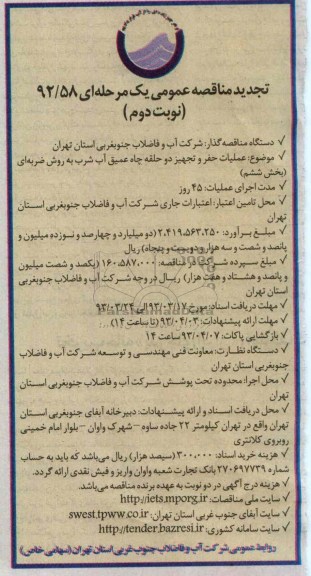 تجدید مناقصه عمومی یک مرحله‌ای ۹۲/۵۸
(نوبت دوم)
✓ دستگاه مناقصه گذار: شرکت آب و فاضلاب جنوبغربی استان تهران
✓ موضوع: عملیات حفر و تجهیز دو حلقه چاه عمیق آب شرب به روش ضربه‌ای
(بخش ششم)
✓ مدت اجرای عملیات: ۴۵ روز
✓ محل تامین اعتبار: اعتبارات جاری شرکت آب و فاضلاب جنوبغربی استان
تهران
✓ مبلغ برآورد: ۲,۴۱۹,۵۶۳,۲۵۰ (دو میلیارد و چهارصد و نوزده میلیون و
پانصد و شصت و سه هزار و دویست و پنجاه) ریال
✓ مبلغ سپرده شرکت در مناقصه: ۱۶۰,۵۸۷,۰۰۰ (یکصد و شصت میلیون
و پانصد و هشتاد و هفت هزار) ریال در وجه شرکت آب و فاضلاب جنوبغربی
استان تهران
✓ مهلت دریافت اسناد: مورخ ۹۳/۰۳/۱۷ الی ۹۳/۰۳/۲۴
✓ مهلت ارائه پیشنهادات: ۹۳/۰۴/۰۳ (تا ساعت ۱۴)
✓ بازگشایی پاکات: ۹۳/۰۴/۰۷ ساعت ۱۴
✓ دستگاه نظارت: معاونت فنی مهندسی و توسعه شرکت آب و فاضلاب
جنوبغربی استان تهران
✓ محل اجرا: محدوده تحت پوشش شرکت آب و فاضلاب جنوبغربی استان
تهران
✓ محل دریافت اسناد و ارائه پیشنهادات: دبیرخانه آبفای جنوبغربی استان
تهران واقع در تهران کیلومتر ۲۲ جاده ساوه – شهرک واوان – بلوار امام خمینی
روبروی کلانتری
✓ هزینه خرید اسناد: ۳۰۰,۰۰۰ (سیصد هزار) ریال می‌باشد که باید به حساب
شماره ۲۷۰۶۹۷۷۳۹ بانک تجارت شعبه واوان واریز و فیش نقدی ارائه گردد.
✓ هزینه درج آگهی در دو نوبت به عهده برنده مناقصه می‌باشد.
✓ سایت ملی مناقصات: http://iets.mporg.ir
✓ سایت آبفای جنوب غربی استان تهران: swest.tpww.co.ir
✓ سایت سامانه کشوری: http://tender.bazresi.ir
روابط عمومی شرکت آب و فاضلاب جنوب غربی استان تهران (سهامی خاص)